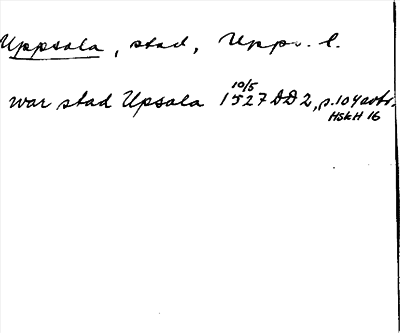 Uppsala, stad, Upps. l.
10/5
war stad Upsala 1527 DD 2, p. 104 avtr.
HSkH 16